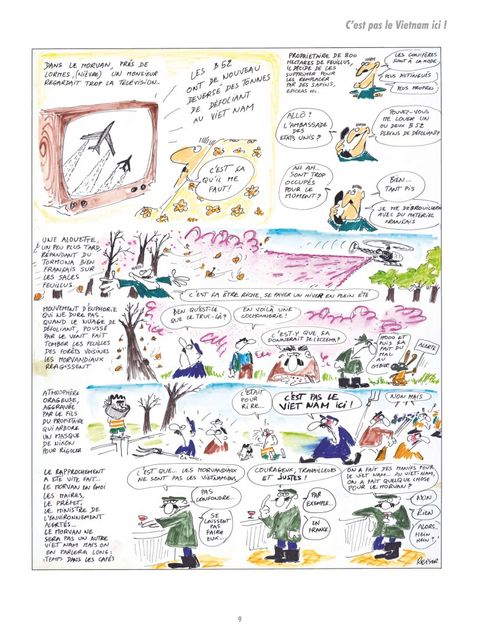 C'est pas le Vietnam ici !
DANS LE MORVAN, PRÉS DE
LORMES, (NIÈVRE) UN MONSIEUR
REGARDAIT TROP LA TÉLÉVISION...
LES B52
ONT DE NOUVEAU
DEVERSÉ DES TONNES
DE DÉFOLIANT
AU VIET NAM
C'EST ÇA
QU'IL ME
FAUT!
PROPRIETAIRE DE 800
HECTARES DE FEUILLUS,
IL DÉCIDE DE LES
SUPPRIMER POUR
LES REMPLACER
PAR DES SAPINS,
EPICEAS etc.
LES CONIFÈRES
SONT À LA MODE
PLUS
PLUS PROPRES
ALLÔ ?
L'AMBASSADE
DES
ETATS UNIS?
POUVEZ-VOUS
ME LOUER UN
OU DEUX B52
PLEINS DE DÉFOLIANT?
AH AH...
SONT TROP
OCCUPÉS
POUR LE
MOMENT?
BEN...
TANT
PIS
JE ME DÉBROUILLERAI
AVEC DU MATÉRIEL
FRANCAIS
UNE ALOUETTE,
UN PEU PLUS TARD,
RÉPANDAIT DU
TORMONA BIEN
FRANÇAIS SUR
LES SALES
FEUILLUS
C'EST ÇA ÊTRE RICHE, SE PAYER UN HIVER EN PLEIN ÉTÉ
MOUVEMENT D'EUPHORIE
QUI NE DURE PAS,
QUAND LE NUAGE DE
DÉFOLIANT, POUSSÉ
PAR LE VENT FAIT
TOMBER LES FEUILLES
DES FORÊTS VOISINES
LES MORVANDIAUX
REAGISSENT
BEN QU'EST-CE
QUE CE TRUC-LÀ?
EN VOILÀ UNE
COCHONNERIE!
EST-Y QUE ÇA
DONNERAIT DE L'ECZEMA?
ET PUIS
FAIT DU
MAL AU
GIBIER
ALERTE
ATMOSPHÈRE
ORAGEUSE,
AGGRAVÉE
PAR LE FILS
DU PROPRIÉTAIRE
QUI ARBORE
UN MASQUE
DE NIXON
POUR RIGOLER
C'ÉTAIT
POUR
RIRE...
C'EST PAS LE
VIET NAM ICI !
NON MAIS
LE RAPPROCHEMENT
A ÉTÉ VITE FAIT...
LE MORVAN EN EMOI
LES MAIRES,
LE PRÉFET,
LE MINISTRE DE
L'ENVIRONNEMENT
ALERTÉS...
LE MORVAN NE
SERA PAS UN AUTRE
VIET NAM MAIS ON
EN PARLERA LONG-
TEMPS DANS LES CAFÉS
C'EST QUE... LES MORVANDIAUX
NE SONT PAS LES VIETNAMIENS
PAS
CONFONDRE...
SE
LAISSENT
PAS
FAIRE
EUX...
COURAGEUX, TRAVAILLEURS
ET JUSTES !
PAR
EXEMPLE...
EN
FRANCE
ON A FAIT DES MANIFS POUR
LE VIET NAM... AU VIET NAM,
ON A FAIT QUELQUE CHOSE
POUR LE MORVAN?
NON
RIEN
ALORS,
HEIN
HEIN?
9